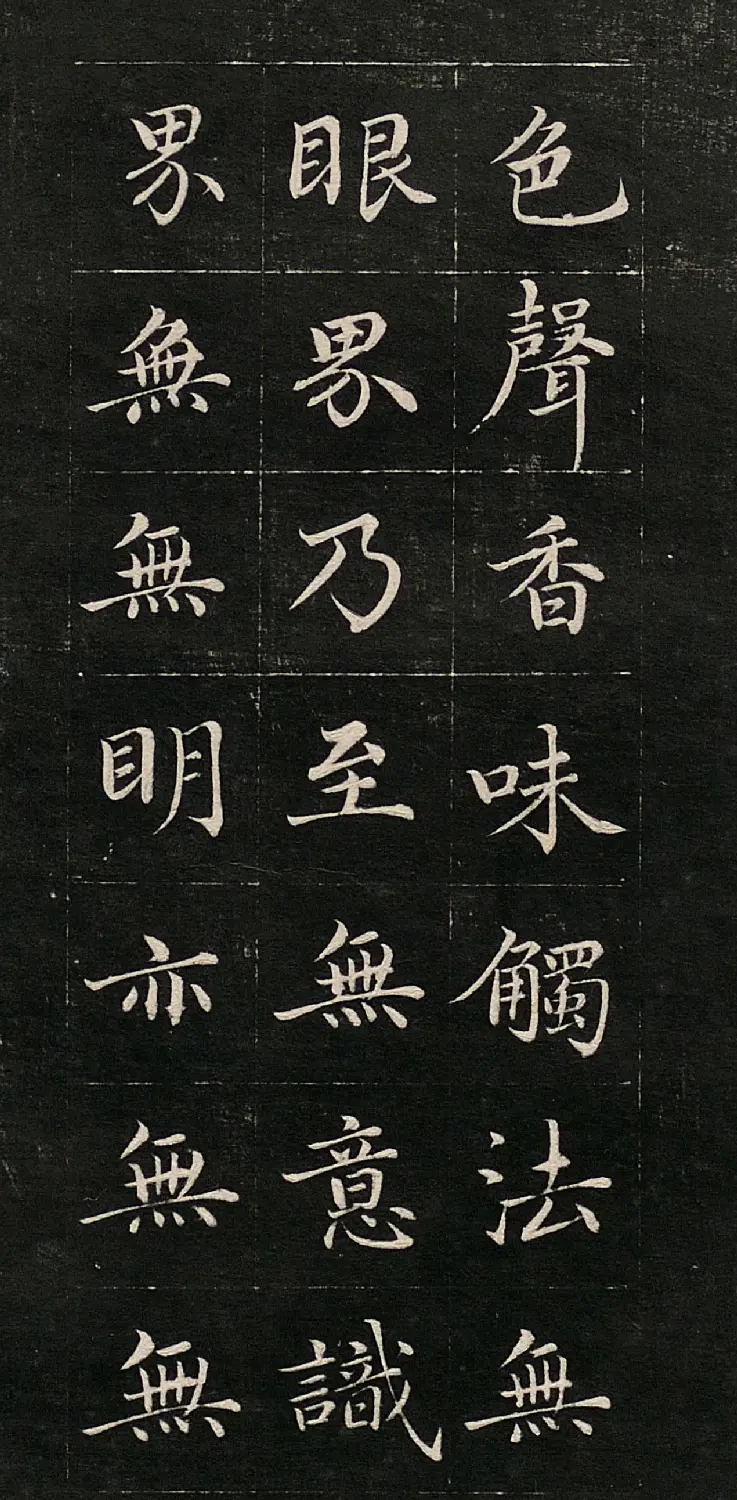 色聲香味觸法無
眼界乃至無意識
界無無明亦無無